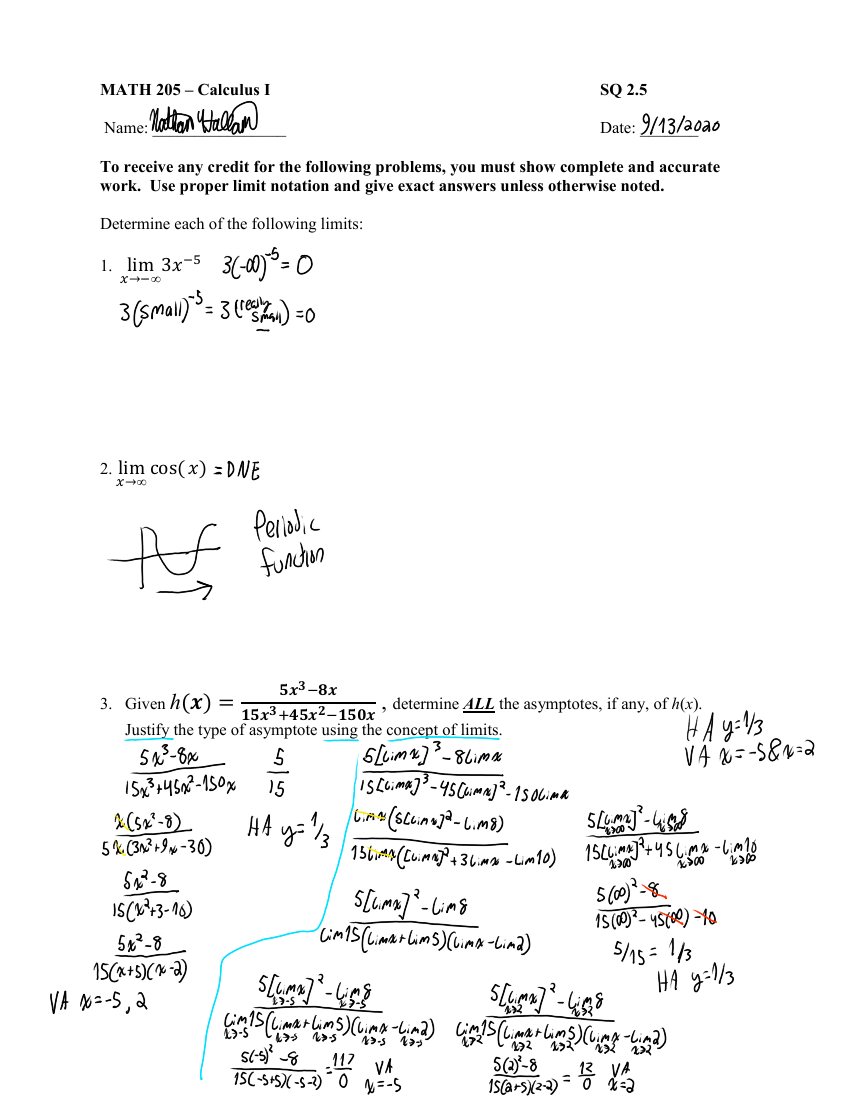 MATH 205 – Calculus I SQ 2.5
Name: Nathan Hallam Date: 9/13/2020
To receive any credit for the following problems, you must show complete and accurate
work. Use proper limit notation and give exact answers unless otherwise noted.
Determine each of the following limits:
1. lim x→−∞ 3x⁻⁵ 3(-∞)⁻⁵ = 0
3(small)⁻⁵ = 3(really small) = 0
2. lim x→∞ cos(x) = DNE
Periodic
function
3. Given h(x) = (5x³−8x)/(15x³+45x²−150x) , determine ALL the asymptotes, if any, of h(x).
Justify the type of asymptote using the concept of limits.
HA y=1/3
VA x=-5 & x=2
(5x³-8x)/(15x³+45x²-150x) 5/15
HA y=1/3
x(5x²-8)/5x(3x²+9x-30)
(5x²-8)/15(x²+3-10)
(5x²-8)/15(x+5)(x-2)
VA x=-5, 2
(5[lim x]³-8lim x)/(15[lim x]³-45[lim x]²-150lim x)
lim x(5[lim x]²-lim 8)/15lim x([lim x]²+3lim x-lim 10)
(5[lim x]²-lim 8)/lim 15(lim x+lim 5)(lim x-lim 2)
(5[lim x→∞ x]²-lim x→∞ 8)/(15[lim x→∞ x]²+45 lim x→∞ x-lim x→∞ 10)
(5(∞)²-8)/(15(∞)²-45(∞)-10)
5/15 = 1/3
HA y=1/3
(5[lim x→-5 x]²-lim x→-5 8)/lim x→-5 15(lim x→-5 x+lim x→-5 5)(lim x→-5 x-lim x→-5 2)
(5(-5)²-8)/15(-5+5)(-5-2) = 117/0 VA x=-5
(5[lim x→2 x]²-lim x→2 8)/lim x→2 15(lim x→2 x+lim x→2 5)(lim x→2 x-lim x→2 2)
(5(2)²-8)/15(2+5)(2-2) = 12/0 VA x=2